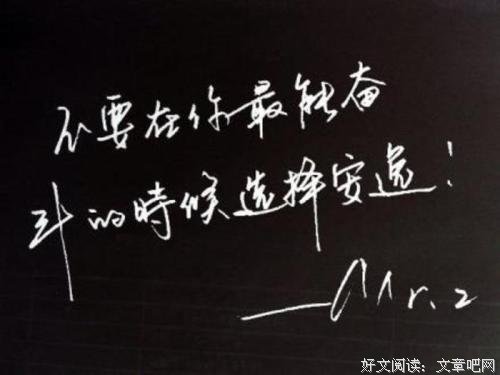 不要在你最能奋
斗的時候选择安逸!
—Mr.2
好文阅读：文章吧网